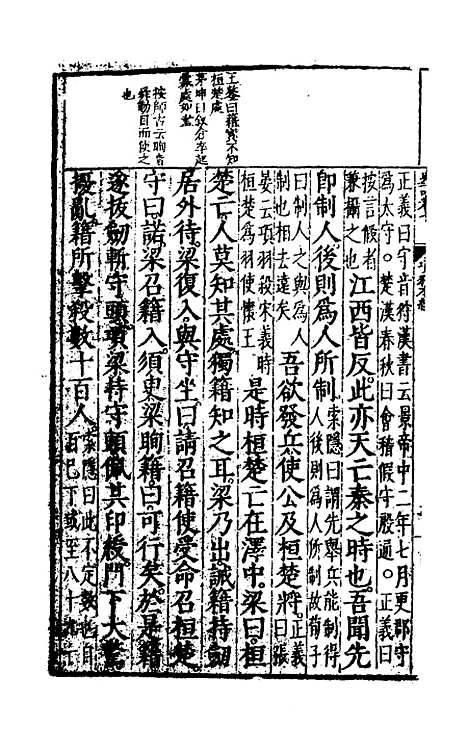 正義曰守音狩漢書云景帝中二年七月更郡守
爲太守。楚漢春秋曰會稽假守殷通。正義曰
按言假者
兼攝之也
江西皆反。此亦天亡秦之時也。吾聞先
即制人後則爲人所制。
索隱曰謂先舉兵能制得
人後則爲人所制故荀子
曰制人之與爲人
制也相去遠矣
吾欲發兵。使公及桓楚將。
正義
曰張
晏云項羽殺宋義時
桓楚爲羽使懷王
是時桓楚亡在澤中。梁曰。桓
楚亡。人莫知其處。獨籍知之耳。梁乃出。誡籍持劒
居外待。梁復入。與守坐。曰。請召籍。使受命召桓楚。
守曰。諾。梁召籍入。須臾。梁眴籍曰。可行矣。於是籍
遂拔劒斬守頭。項梁持守頭。佩其印綬。門下大驚
擾亂。籍所擊殺數十百人。
索隱曰此不定數也自
百已下或至八十九十
王鏊曰籍實不知
桓楚處
茅坤曰叙倉卒起
按師古云眴音
舜動目而使之
也